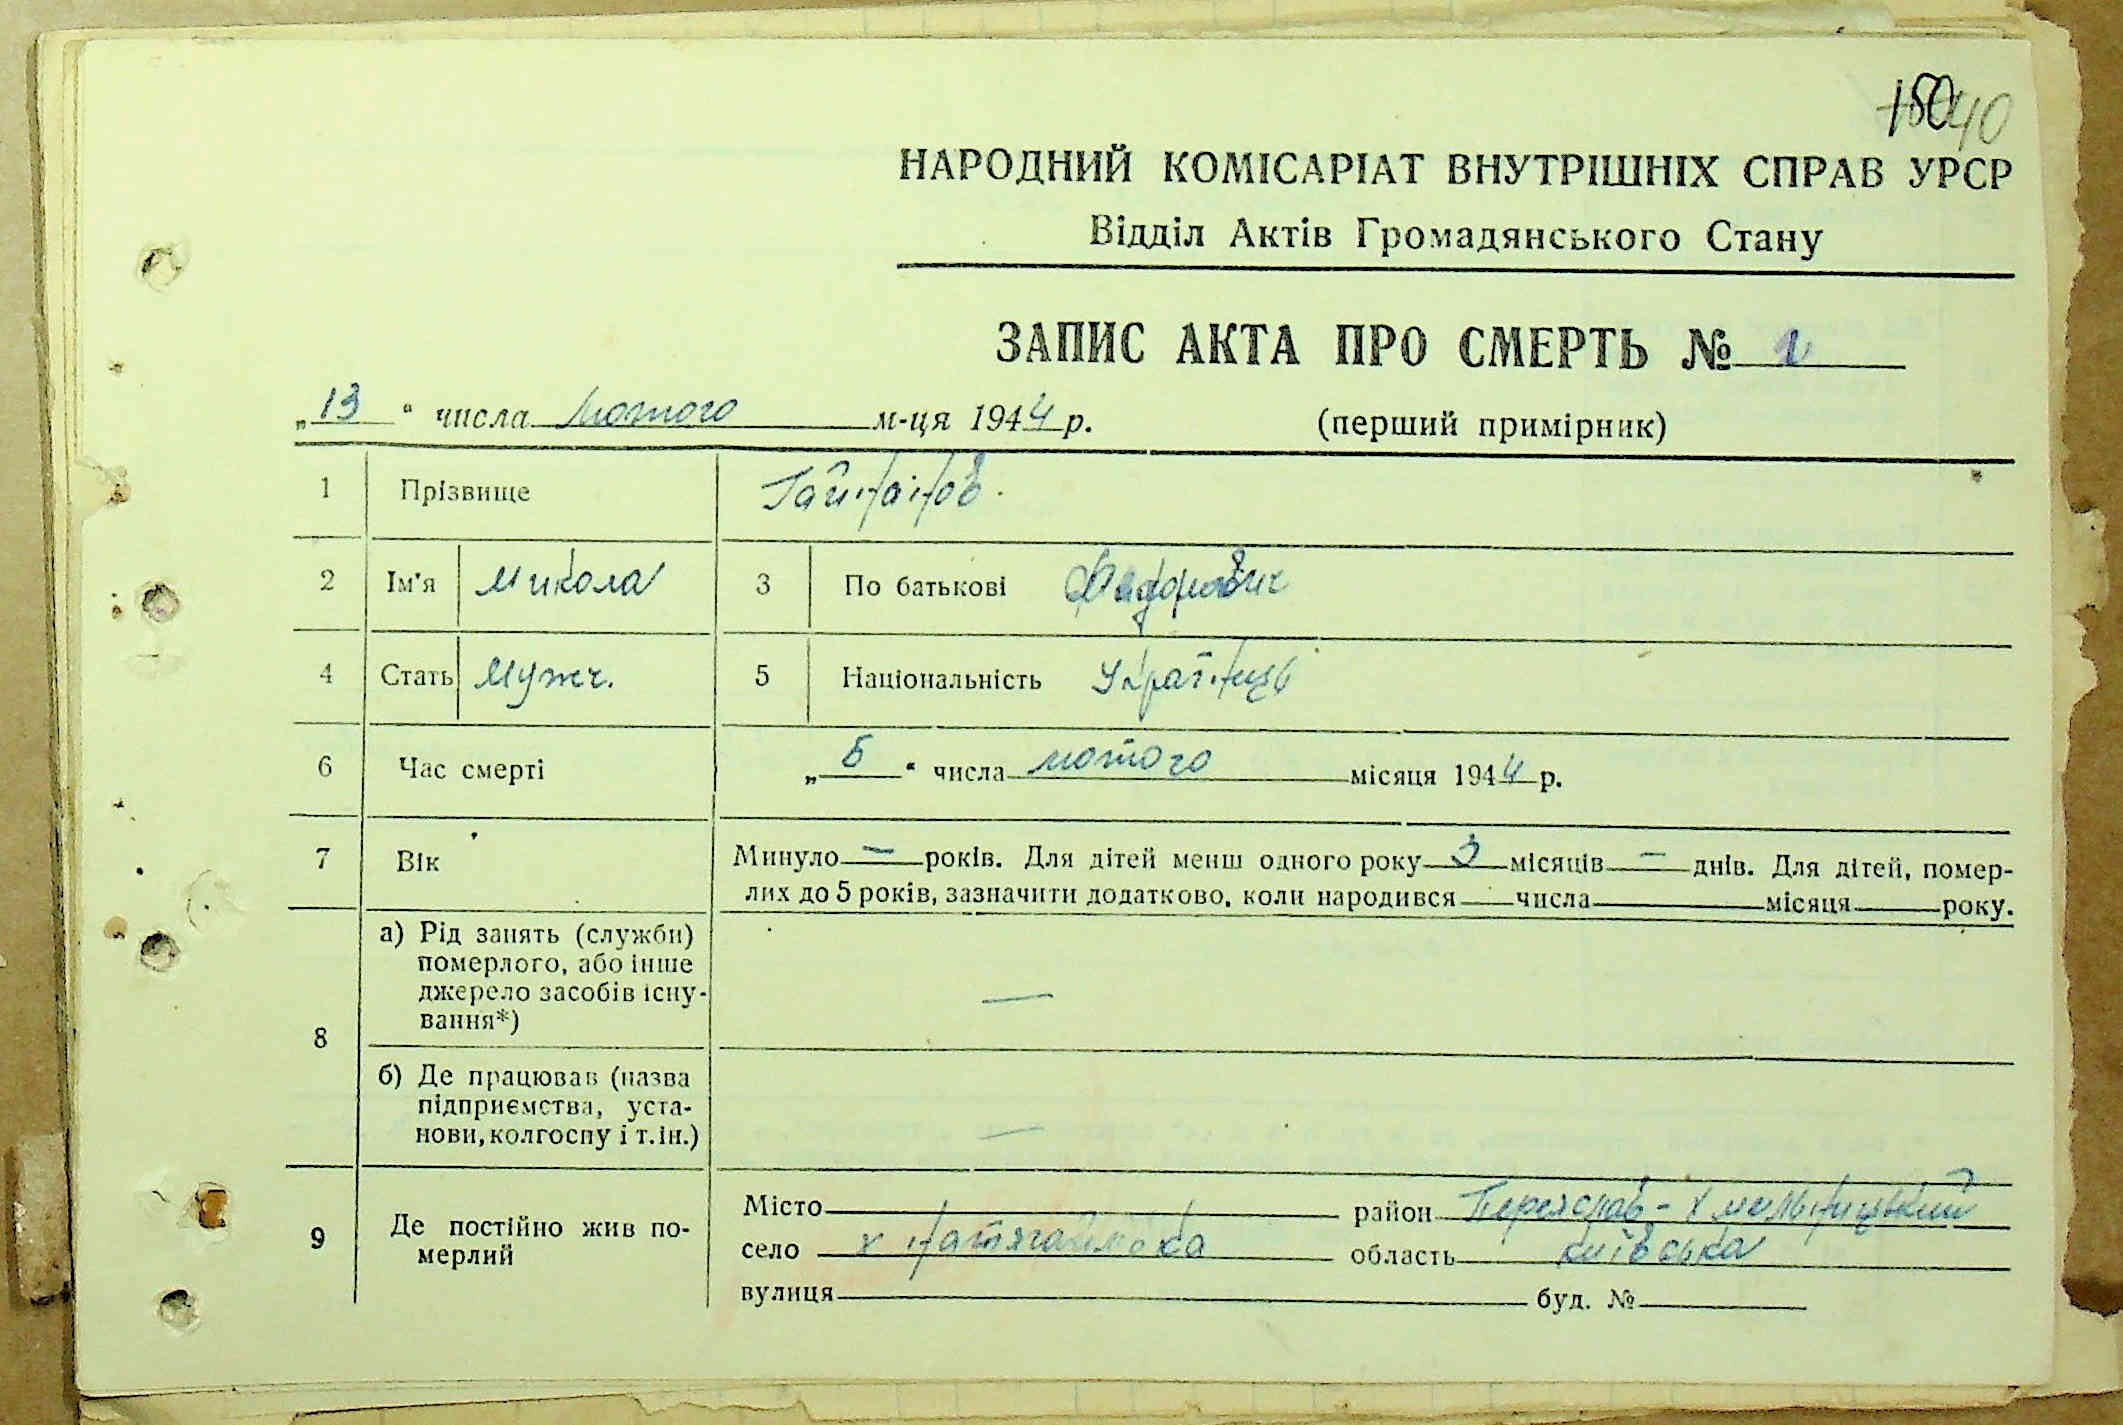 150 40
НАРОДНИЙ КОМІСАРІАТ ВНУТРІШНІХ СПРАВ УРСР
Відділ Актів Громадянського Стану
ЗАПИС АКТА ПРО СМЕРТЬ №
„13“ числа лютого м-ця 1944 р. (перший примірник)
1 Прізвище Гайтанов.
2 Ім'я Микола 3 По батькові
4 Стать Мужч. 5 Національність Українці
6 Час смерті „6“ числа лютого місяця 1944 р.
7 Вік Минуло — років. Для дітей менш одного року 3 місяців — днів. Для дітей, помер-
лих до 5 років, зазначити додатково, коли народився числа місяця року.
8 а) Рід занять (служби)
померлого, або інше
джерело засобів існу-
вання*) —
б) Де працював (назва
підприємства, уста-
нови, колгоспу і т.ін.) —
9 Де постійно жив по-
мерлий
Місто район Переяслав-Хмельницький
село х область Київська
вулиця буд. №